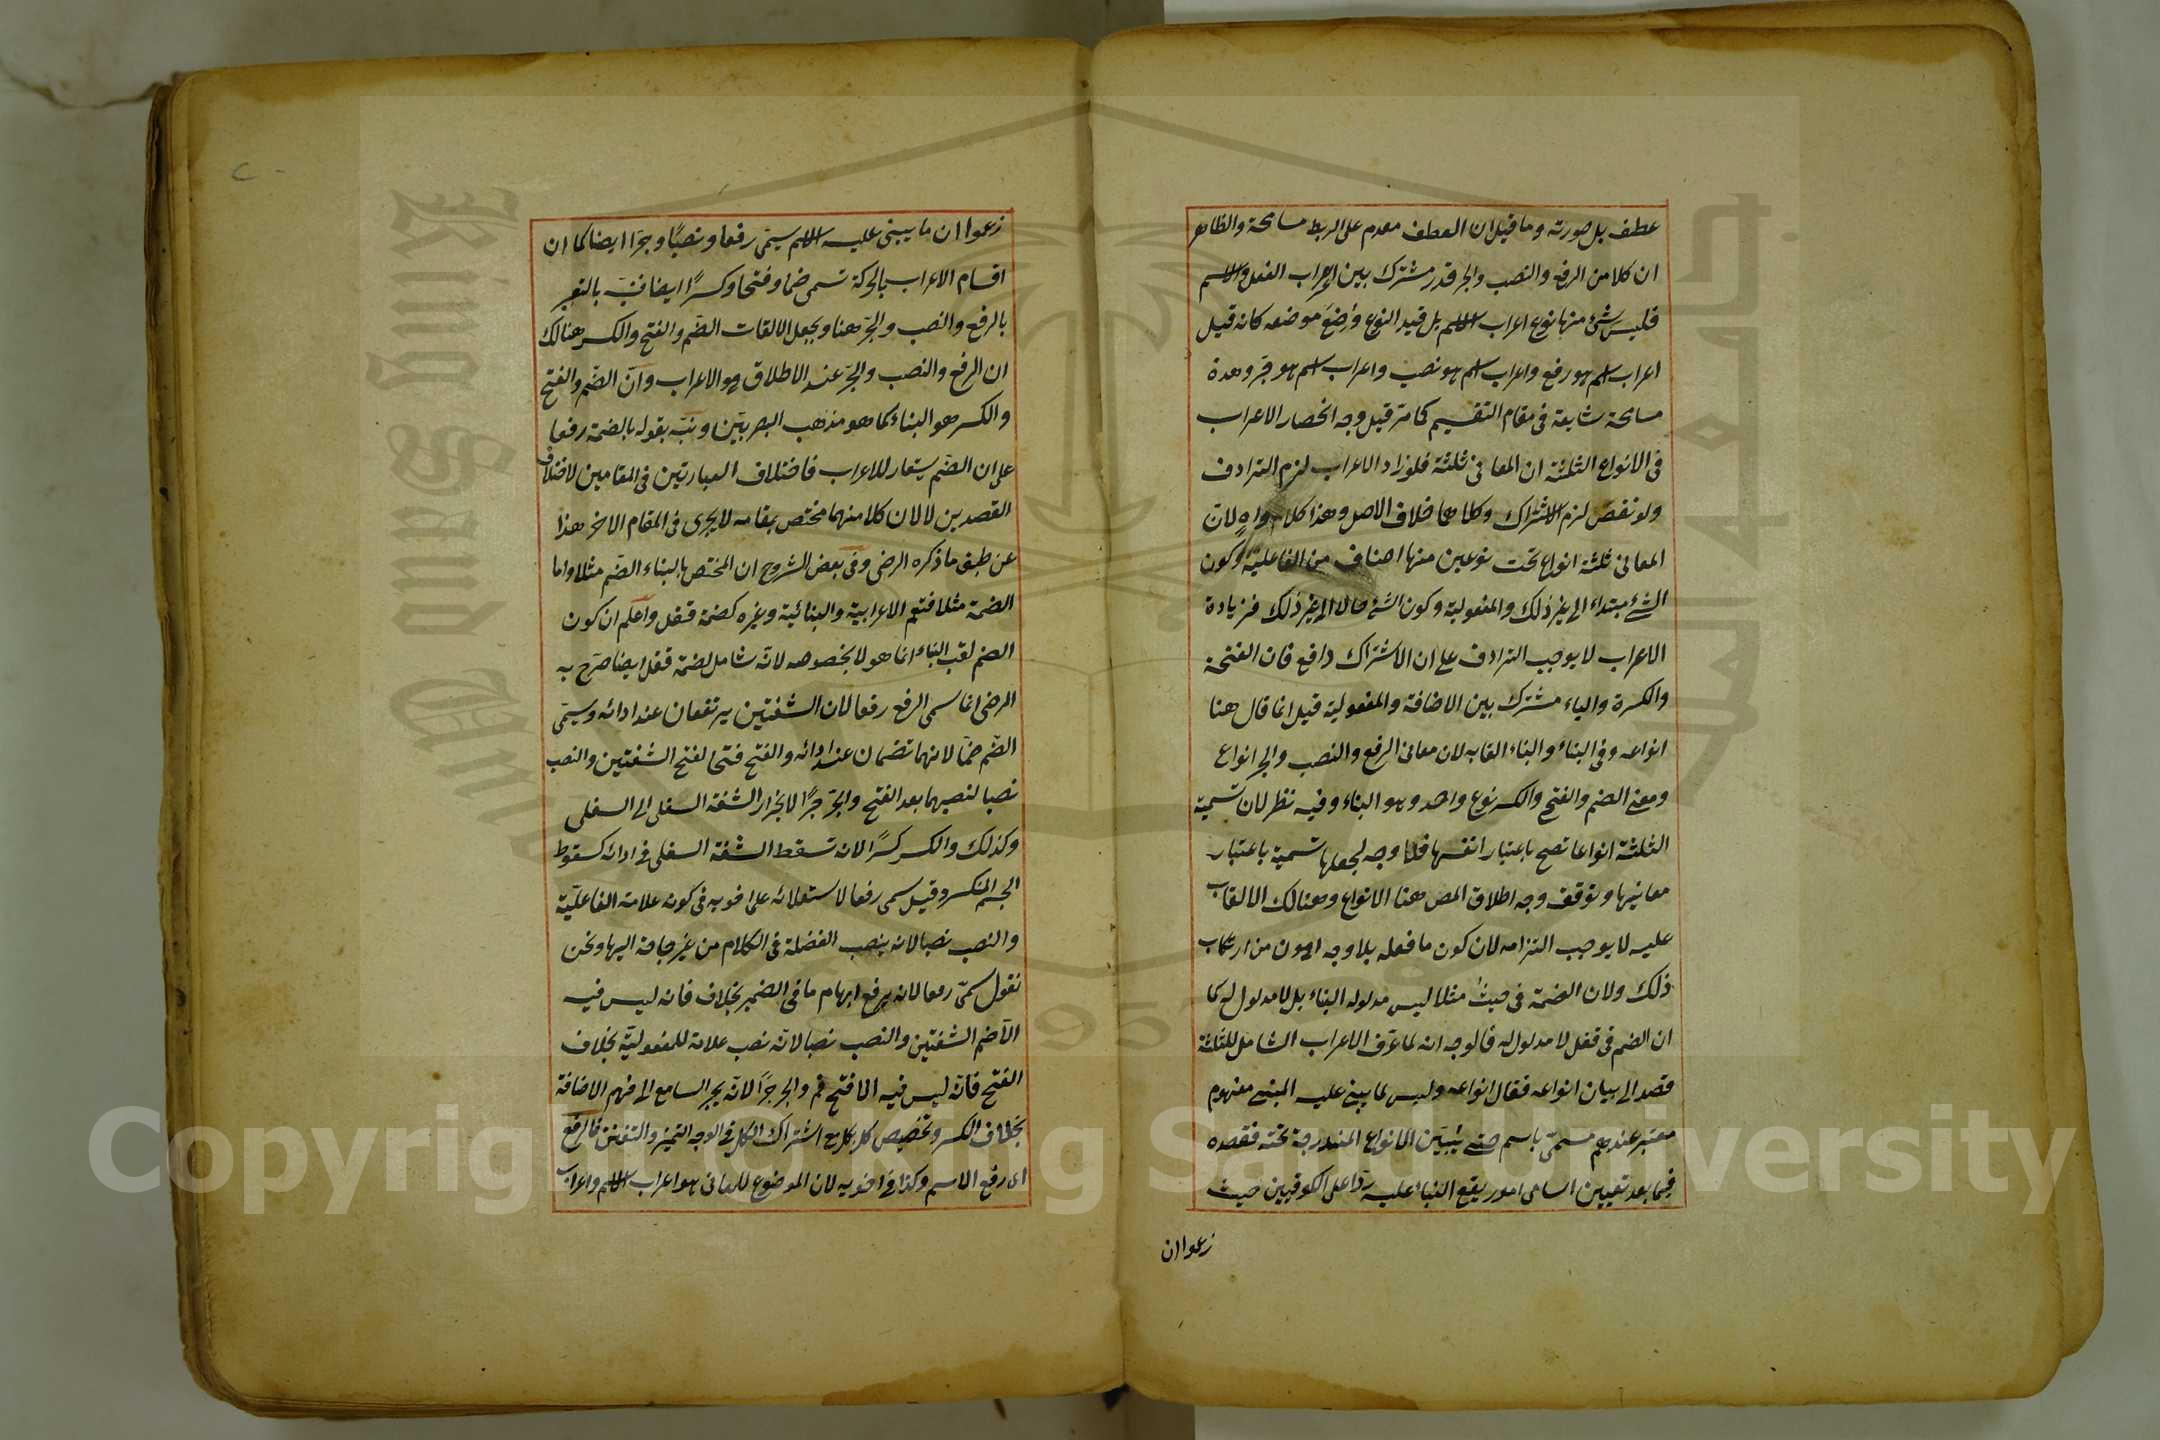 عطف بل صورته وما قيل ان العطف مقدم على الربط مسامحة والظاهر
ان كلا من الرفع والنصب والجر قدر مشترك بين اعراب الفعل والاسم
فليس شئ منها نوع اعراب الاسم بل قيد النوع وُضِعَ موضعه كانه قيل
اعراب اسم هو رفع واعراب اسم هو نصب واعراب اسم هو جر وهذه
مسامحة شايعة فى مقام التقسيم كما مر قيل وجه انحصار الاعراب
فى الانواع الثلثة ان المعانى ثلثة فلو زاد الاعراب لزم الترادف
ولو نقص لزم الاشتراك وكلاهما خلاف الاصل وهذا كلام واهٍ لان
المعانى ثلثة انواع تحت نوعين منها اصناف من الفاعلية وكون
الشئ مبتداء الى غير ذلك والمفعولية وكون الشئ حالا الى غير ذلك فزيادة
الاعراب لا يوجب الترادف على ان الاشتراك دافع فان الفتحة
والكسرة والياء مشترك بين الاضافة والمفعولية قيل انما قال هنا
انواعه وفى البناء والبناء القابه لان معانى الرفع والنصب والجر انواع
ومعنى الضم والفتح والكسر نوع واحد وهو البناء وفيه نظر لان تسمية
الثلثة انواعا تصح باعتبار انفسها فلا وجه لجعلها تسمية باعتبار
معانيها وتوقف وجه اطلاق المص هنا الانواع وهنالك الالقاب
عليه لا يوجب التزامه لان كون ما فعله بلا وجه اهون من ارتكاب
ذلك ولان الضمة فى حيثُ مثلا ليس مدلوله البناء بل لا مدلول له كما
ان الضم فى قفل لا مدلول له فالوجه انه لما عرّف الاعراب الشامل للثلثة
قصد الى بيان انواعه فقال انواعه وليس لما يبنى عليه المبنى مفهوم
معتبر عندهم مسمّى باسم حتى يبيّن الانواع المندرجة تحته فقصده
فيما بعد تعيين اسامى امور يقع البناء عليه ردّا على الكوفيين حيث
زعموا ان
زعموا ان ما يبنى عليه الاسم يسمّى رفعا ونصبًا وجرّا ايضا كما ان
اقسام الاعراب بالحركة تسمى ضما وفتحا وكسرًا ايضا فنبّه بالتعبير
بالرفع والنصب والجرّ هنا وبجعل الالقاب الضّم والفتح والكسر هنالك
ان الرفع والنصب والجرّ عند الاطلاق هو الاعراب وانّ الضّم والفتح
والكسر هو البناء كما هو مذهب البصريّين ونبّه بقوله بالضمة رفعا
على ان الضّم يستعار للاعراب فاختلاف العبارتين فى المقامين لاختلاف
القصدين لا لان كلا منهما مختص بمقامه لا يجرى فى المقام الاخر هذا
على طبق ما ذكره الرضى وفى بعض الشروح ان المختص بالبناء الضّم مثلا واما
الضمة مثلا فتعم الاعرابية والبنائية وغيره كضمة قفل واعلم ان كون
الضم لقب البناء انما هو لا بخصوصه لانّه شامل لضمة قفل ايضا صرّح به
الرضى انما سمى الرفع رفعا لان الشفتين يرتفعان عند ادائه وسمّى
الضّم ضمّا لانهما تضمان عند ادائه والفتح فتحا لفتح الشفتين والنصب
نصبا لنصبهما بعد الفتح والجرّ جرًّا لانجرار الشفة السفلى الى السفلى
وكذلك والكسر كسرًا لانه تسقط الشفة السفلى فى ادائه كسقوط
الجسم المنكسر وقيل سمى رفعا لاستعلائه على اخويه فى كونه علامة الفاعليّة
والنصب نصبا لانه ينصب الفضلة فى الكلام من غير حاجة اليها ونحن
نقول سمّى رفعا لانه يرفع ابهام ما فى الضمير بخلاف فانه ليس فيه
الّا ضم الشفتين والنصب نصبا لانّه نصب علامة للمفعوليّة بخلاف
الفتح فانّه ليس فيه الا فتح فم والجر جرًّا لانّه يجر السامع الى فهم الاضافة
بخلاف الكسر وتخصيص كل بكل مع اشتراك الكل فى الوجه التميز والتفنن فالرفع
اى رفع الاسم وكذا فى اخويه لان الموضوع للمعانى هو اعراب الاسم واعراب